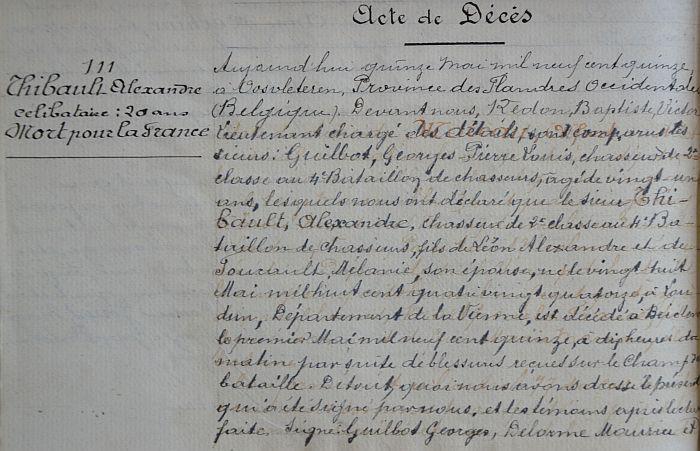 Acte de Décès
111
Thibault Alexandre
célibataire : 20 ans
Mort pour la France
Aujourd'hui quinze Mai mil neuf cent quinze,
à Oosvleteren, Province des Flandres Occidentales
(Belgique). Devant nous, Redon, Baptiste, Victor
Lieutenant chargé des détails, sont comparus les
sieurs: Guilbot, Georges Pierre Louis, chasseur de 2e
classe au 4e Bataillon de chasseurs, âgé de vingt-un
ans, lesquels nous ont déclaré que le sieur Thi-
bault, Alexandre, chasseur de 2e classe au 4e Ba-
taillon de chasseurs, fils de Léon Alexandre et de
Mélanie, son épouse, né le vingt huit
Mai mil huit cent quatre vingt quatorze, à Lou-
dun, Département de la Vienne, est décédé à
le premier Mai mil neuf cent quinze, à dix heures du
matin par suite de blessures reçues sur le Champ de
bataille. De tout quoi nous avons dressé le présent
qui a été signé par nous, et les témoins après lecture
faite. Signé: Guilbot Georges, Delorme Maurice et